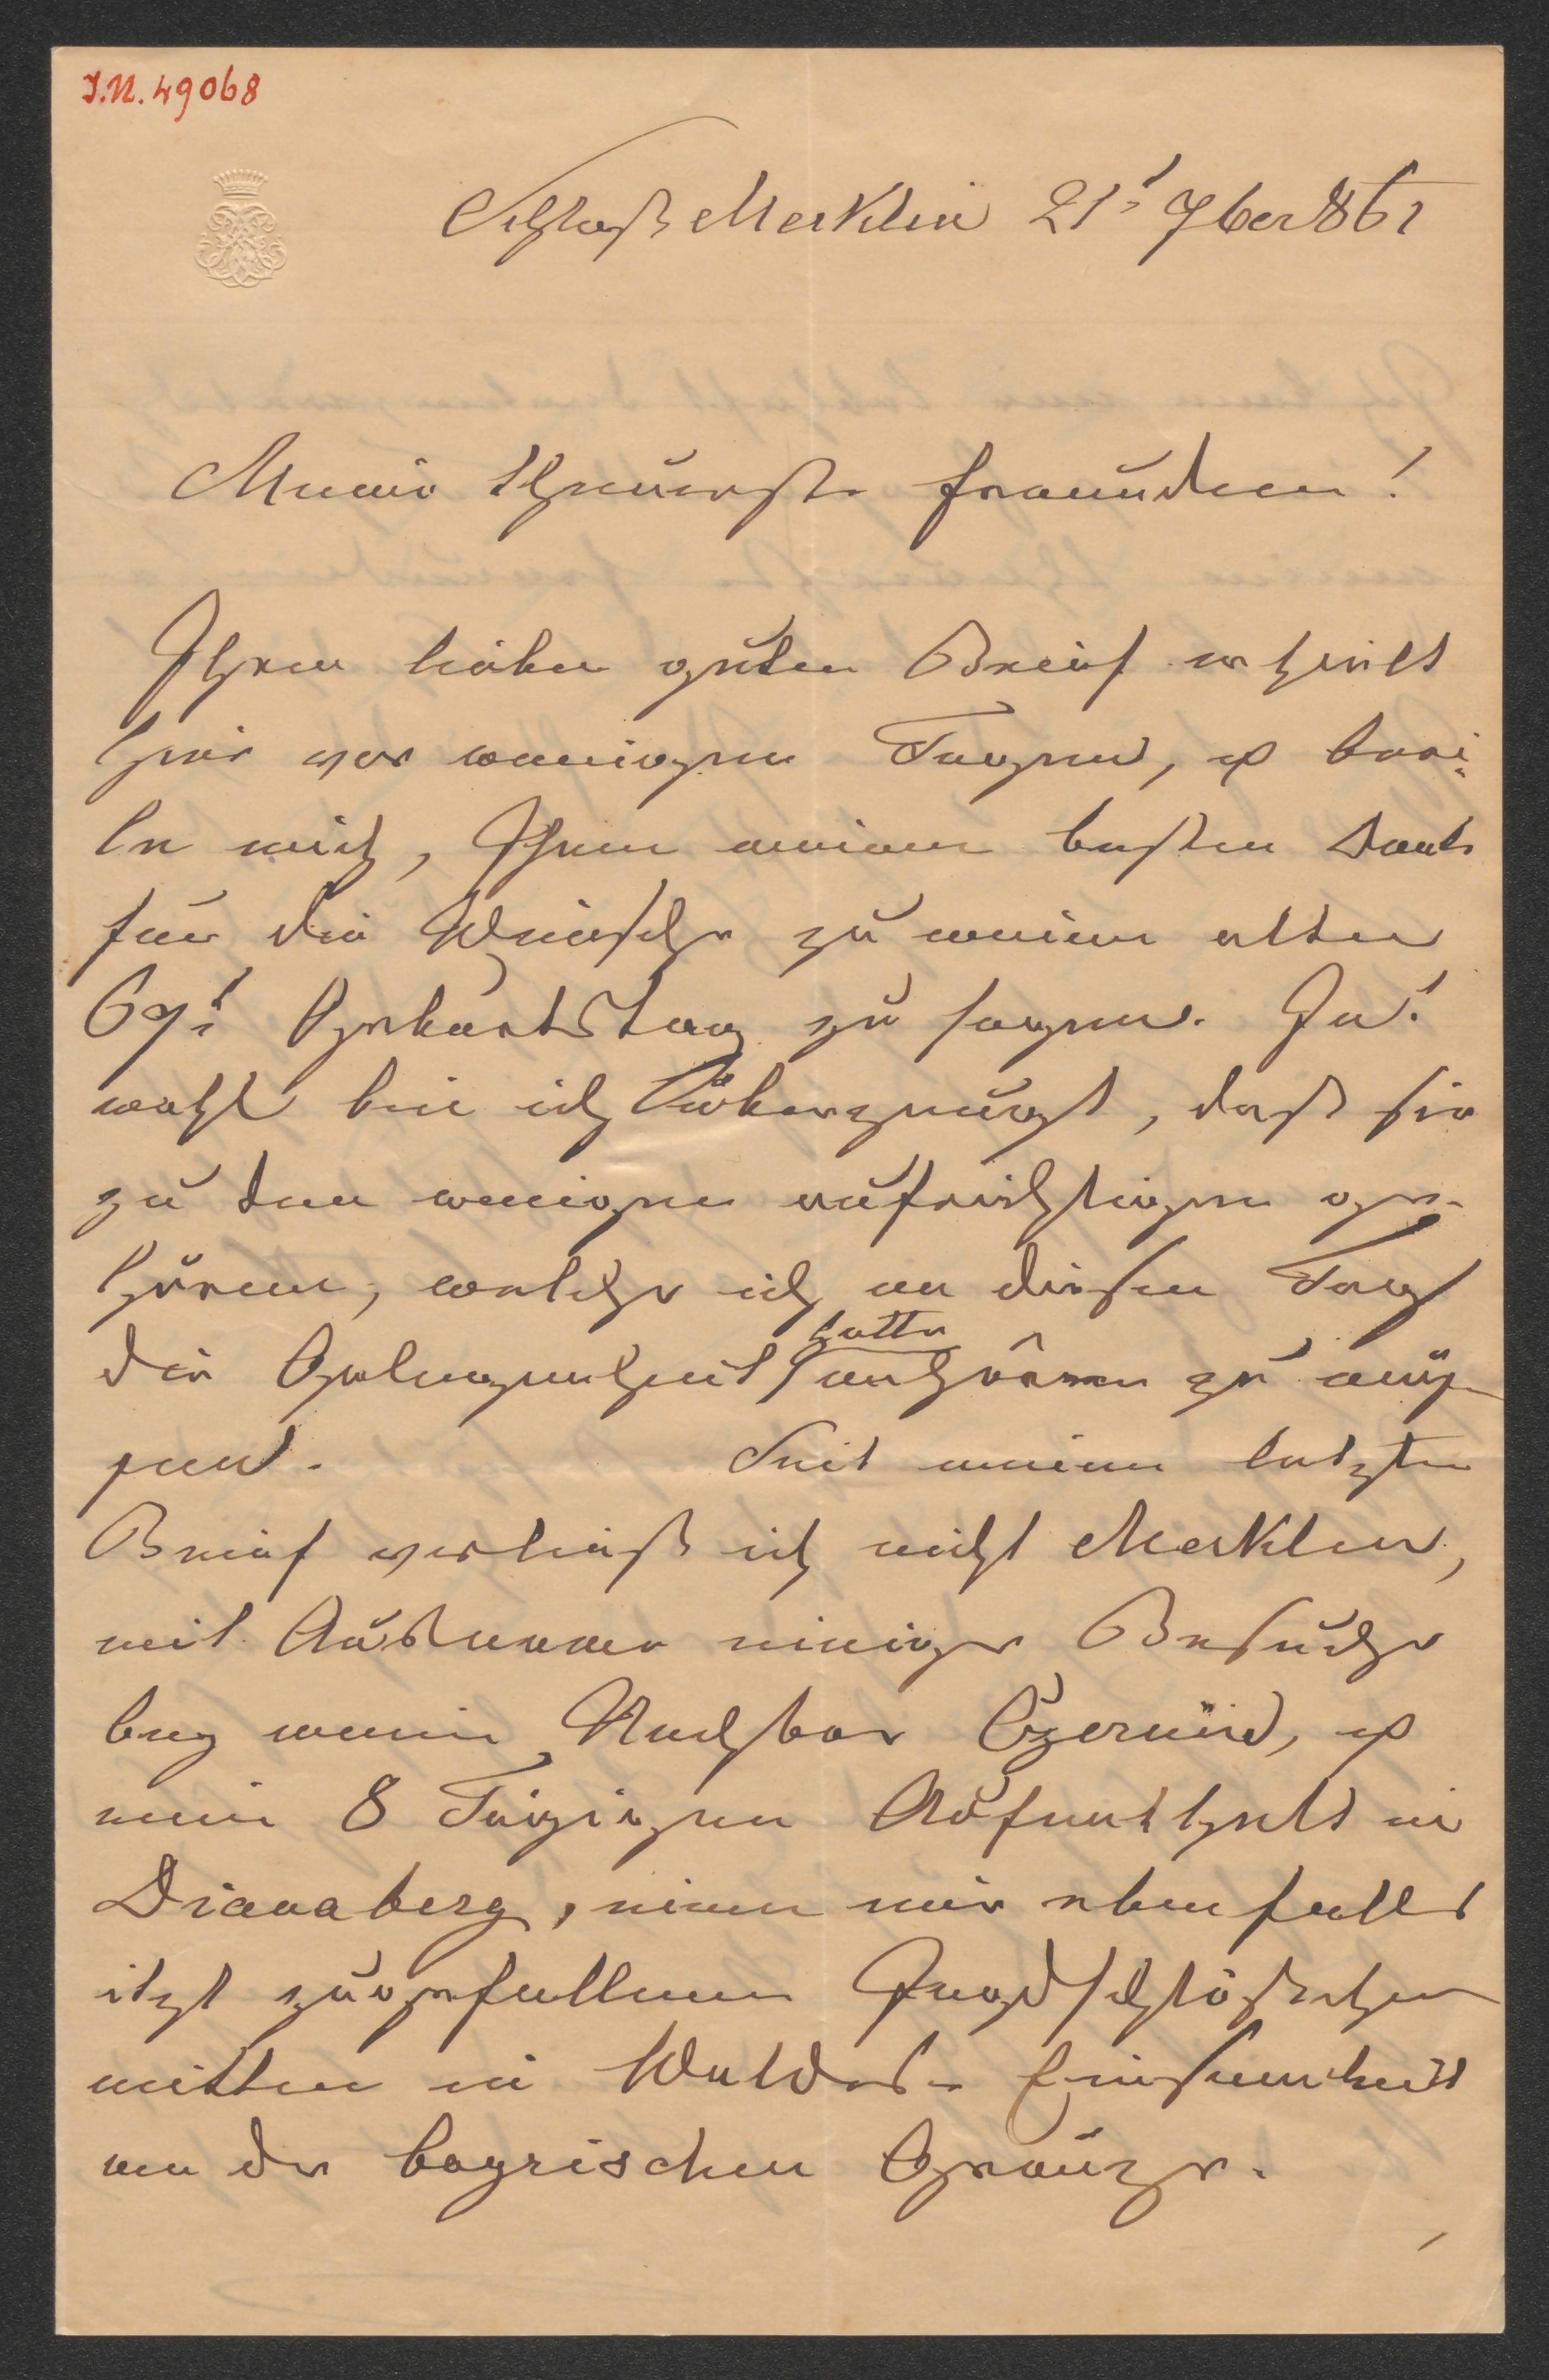 I.N. 49068
Schloß Merklin 21t 7ber 861
Meine theuerste Freundin!
Ihren lieben guten Brief erhielt
hier vor wenigen Tagen, u. beei-
le mich, Ihnen meinen besten Dank
für die Wünsche zu meinen alten
69t Geburtstag zu sagen. Ja!
wohl bin ich überzeugt, daß sie
zu den wenigen aufrichtigen ge-
hören, welche ich an diesen Tag
die Gelegenheit hatte anhören zu müs-
sen. Seit meinen letzten
Brief verließ ich nicht Merklin,
mit Ausname einiger Besuche
bey mein Nachbar Czernin, u.
mein 8 Tägigen Aufenthalt in
Dianaberg, einen mir ebenfalls
itzt zugefallenen Jagdschlößchen
mitten in Waldes-Einsamkeit
an der bayrischen Gränze.